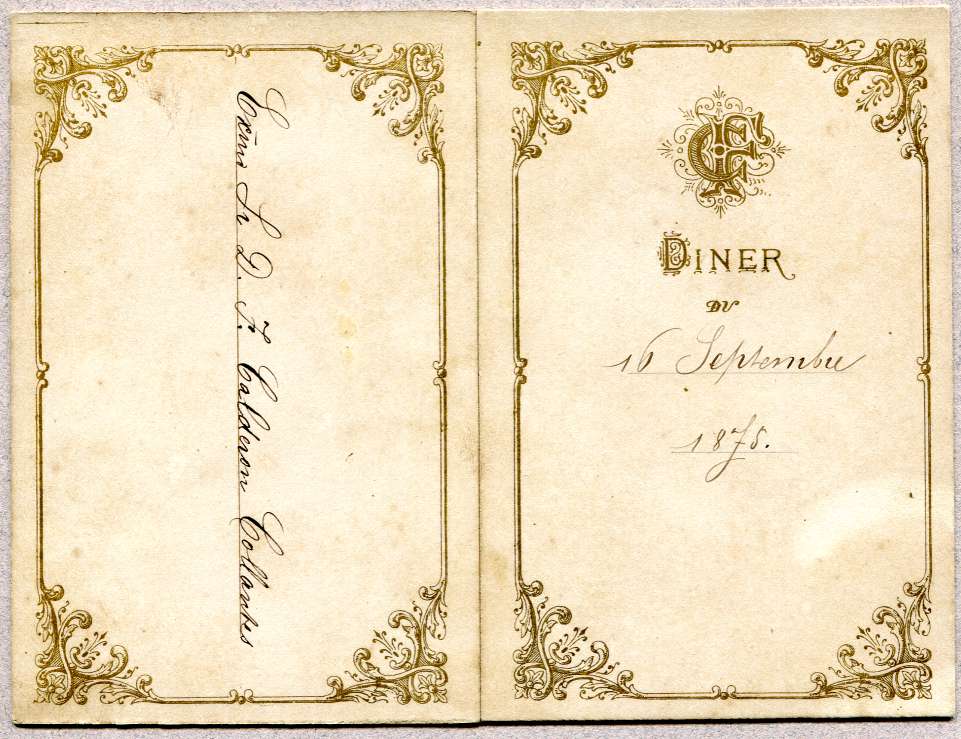 Exmo Sr D. F. Calderon Collantes
DINER
DU
16 Septembre
1875.